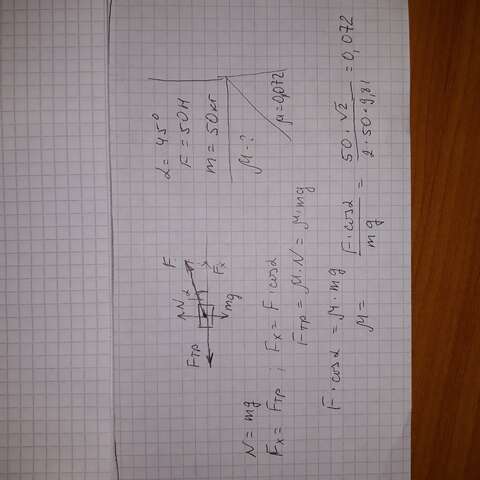 α = 45°
F = 50Н
m = 50кг
μ - ?
μ = 0,072
F
N α
Fx
Fтр
mg
N = mg
Fx = Fтр ; Fx = F · cosα
Fтр = μ · N = μ · mg
F · cosα = μ · mg
μ = F · cosα / mg = 50 · √2 / 2 · 50 · 9,81 = 0,072